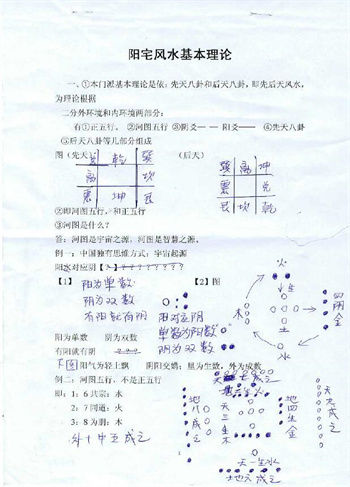 阳宅风水基本理论
一、①本门派基本理论是依：先天八卦和后天八卦，即先后天风水，
为理论根据
二分外环境和内环境两部分：
有①正五行。②河图五行 ③阴爻— — 阳爻—— ④先天八卦
⑤后天八卦等几部分组成
图（先天） 兑 乾 巽 （后天） 巽 离 坤
离 坎 震 兑
震 坤 艮 艮 坎 乾
②即河图五行，和正五行
③河图是什么？
答：河图是宇宙之源，河图是智慧之源，
例一：中国独有思维方式：宇宙起源
阳永对应阴
【1】 阳为单数 【2】图
阴为双数
有阳就有阴 阳对应阴
阳为单数 阴为双数 单数为阳数
有阳就有阴 阴为双数
火
木 生 四阴金
土
水
下图 阳气为轻上飘 阴阳交媾：里为生数，外为成数
例二：河图五行，不是正五行
即：1：6 共宗：水
2：7 同道：火
3：8 为朋：木
天七成之
地二生火
地八成之 天三生木 地四生金 天九成之
天一生水
地六成之